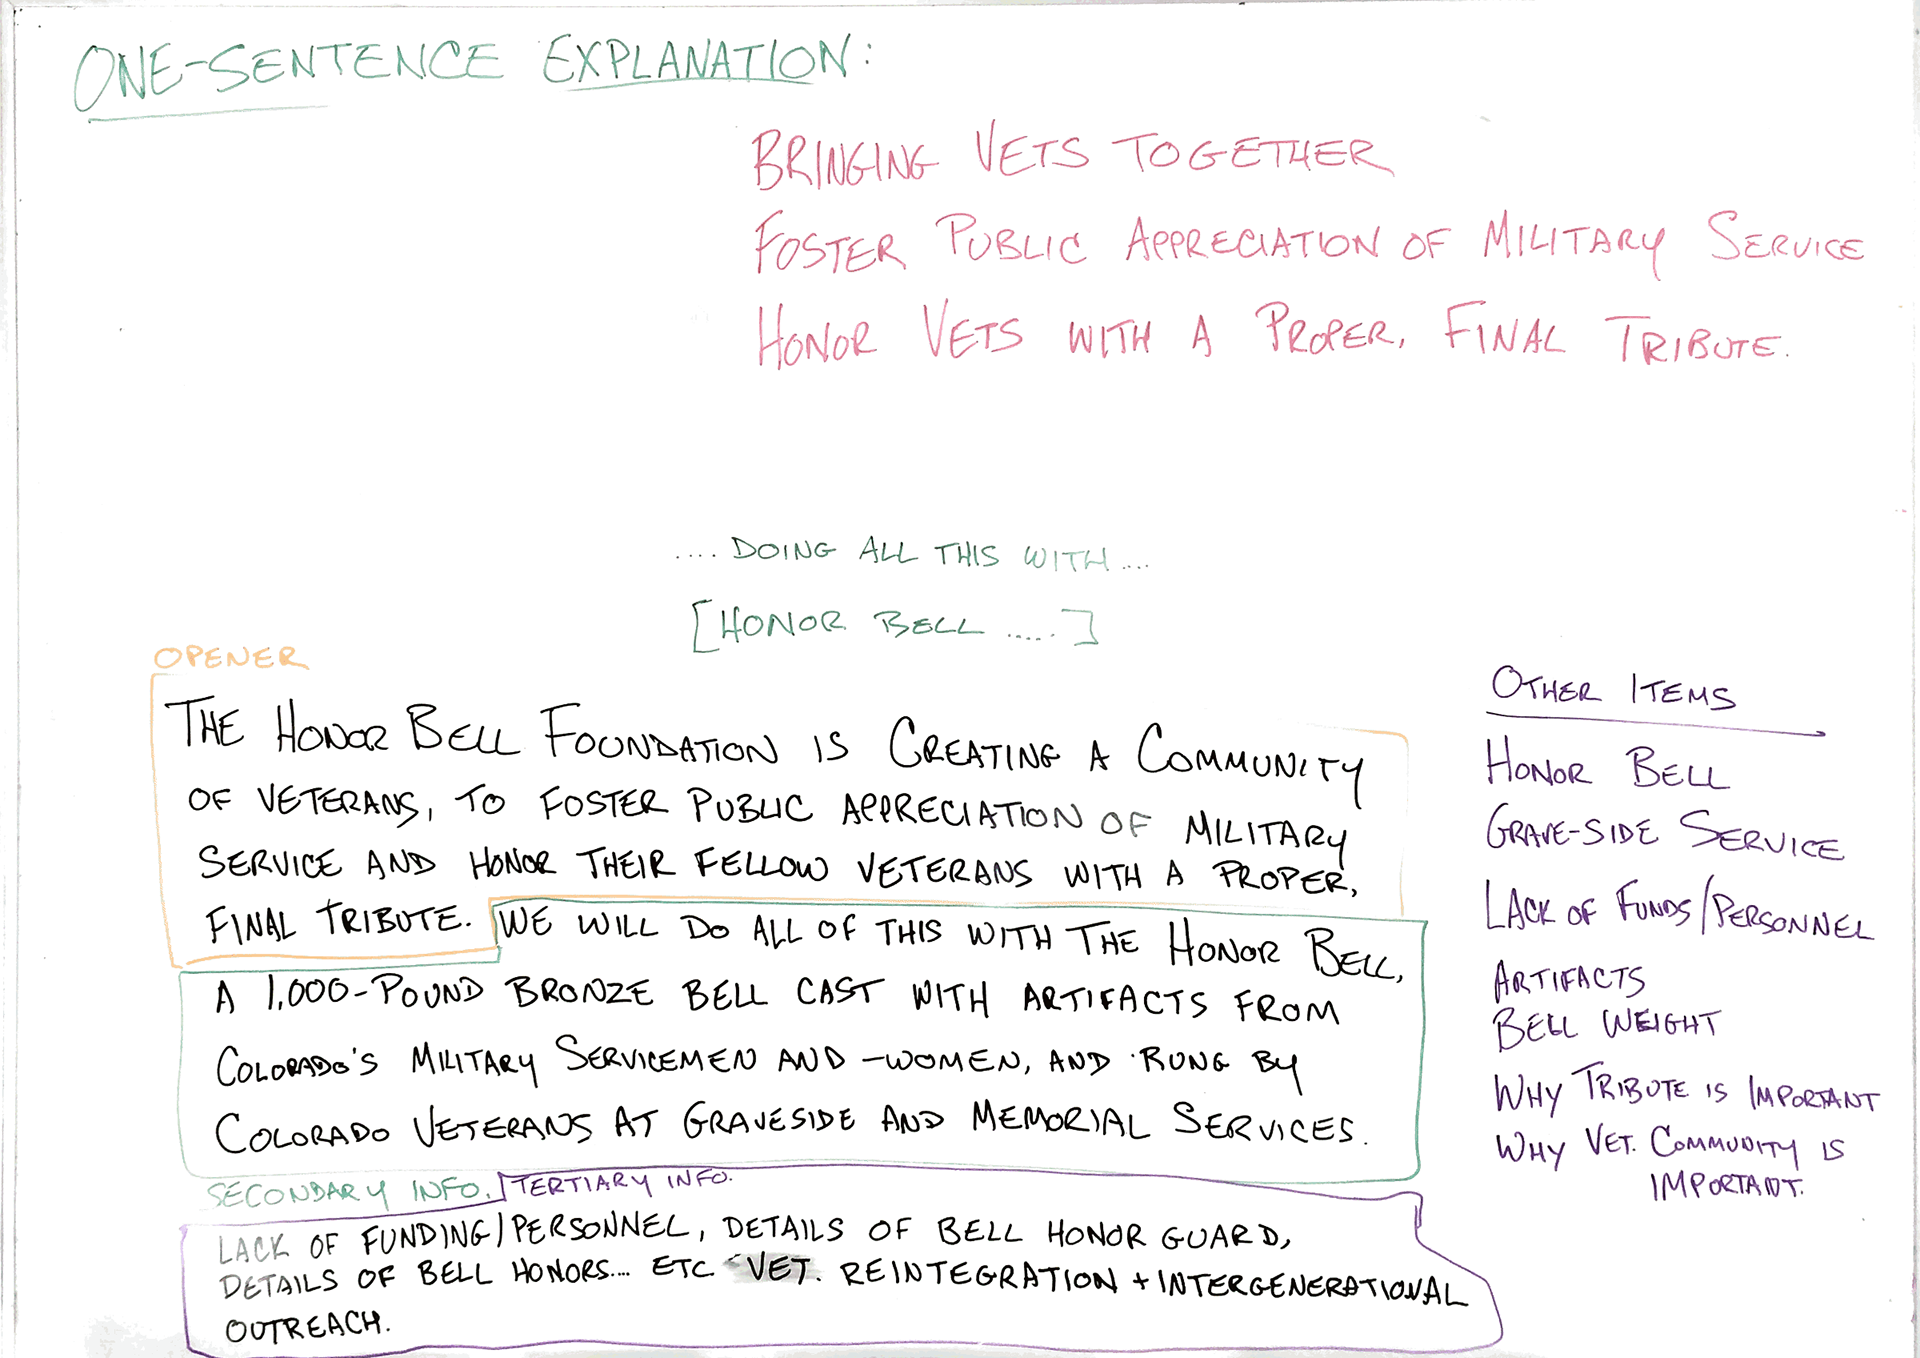 ONE-SENTENCE EXPLANATION:
BRINGING VETS TOGETHER
FOSTER PUBLIC APPRECIATION OF MILITARY SERVICE
HONOR VETS WITH A PROPER, FINAL TRIBUTE.
.... DOING ALL THIS WITH....
[HONOR BELL .....]
OPENER
THE HONOR BELL FOUNDATION IS CREATING A COMMUNITY
OF VETERANS, TO FOSTER PUBLIC APPRECIATION OF MILITARY
SERVICE AND HONOR THEIR FELLOW VETERANS WITH A PROPER,
FINAL TRIBUTE. WE WILL DO ALL OF THIS WITH THE HONOR BELL,
A 1,000-POUND BRONZE BELL CAST WITH ARTIFACTS FROM
COLORADO'S MILITARY SERVICEMEN AND -WOMEN, AND RUNG BY
COLORADO VETERANS AT GRAVESIDE AND MEMORIAL SERVICES.
SECONDARY INFO. TERTIARY INFO.
LACK OF FUNDING/PERSONNEL, DETAILS OF BELL HONOR GUARD,
DETAILS OF BELL HONORS.... ETC VET. REINTEGRATION + INTERGENERATIONAL
OUTREACH.
OTHER ITEMS
HONOR BELL
GRAVE-SIDE SERVICE
LACK OF FUNDS/PERSONNEL
ARTIFACTS
BELL WEIGHT
WHY TRIBUTE IS IMPORTANT
WHY VET. COMMUNITY IS
IMPORTANT.